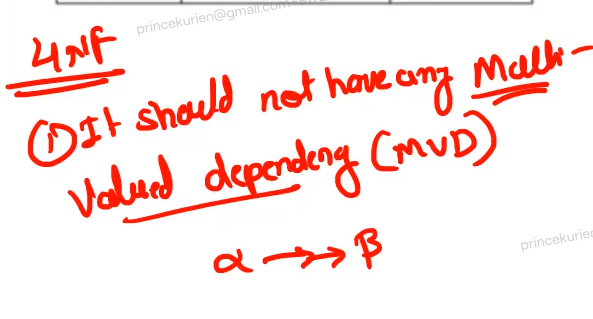 princekurien@gmail.com
4NF
① It should not have any Multi-
Valued dependency (MVD)
α →→ β
princekurien